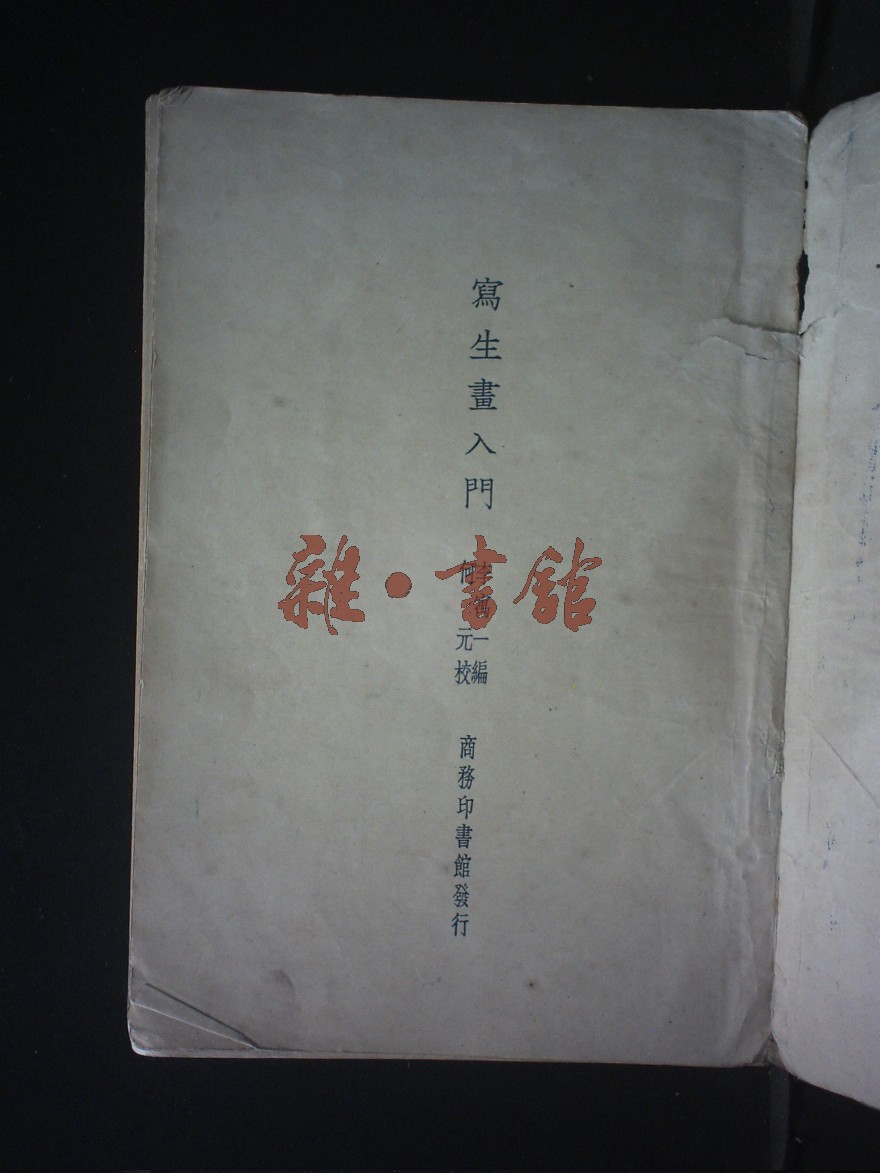 寫生畫入門
李
一編
何元校
商務印書館發行
雜·書館